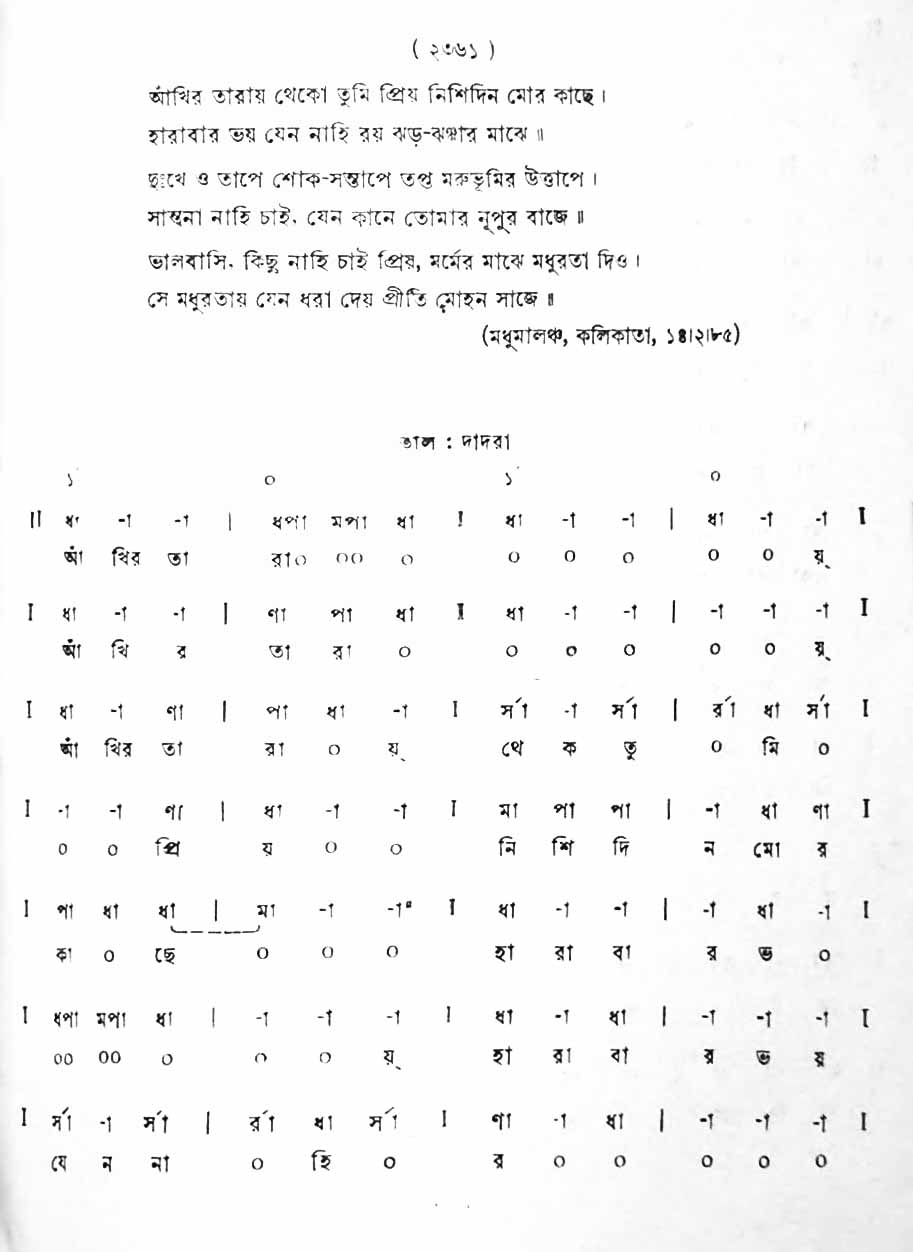 ( ২৩৬১ )
আঁখির তারায় থেকো তুমি প্রিয় নিশিদিন মোর কাছে ।
হারাবার ভয় যেন নাহি রয় ঝড়-ঝঞ্ঝার মাঝে ॥
দুঃখে ও তাপে শোক-সন্তাপে তপ্ত মরুভূমির উত্তাপে ।
সান্ত্বনা নাহি চাই, যেন কানে তোমার নূপুর বাজে ॥
ভালবাসি, কিছু নাহি চাই প্রিয়, মর্মের মাঝে মধুরতা দিও ।
সে মধুরতায় যেন ধরা দেয় প্রীতি মোহন সাজে ॥
(মধুমালঞ্চ, কলিকাতা, ১৪।২।৮৫)
তাল : দাদরা
১ ০ ১ ০
II ধা -া -া | ধপা মপা ধা I ধা -া -া | ধা -া -া I
আঁ খির তা রা০ ০০ ০ ০ ০ ০ ০ ০ য়্
I ধা -া -া | ণা পা ধা I ধা -া -া | -া -া -া I
আঁ খি র তা রা ০ ০ ০ ০ ০ ০ য়্
I ধা -া ণা | পা ধা -া I র্সা -া র্সা | র্রা ধা র্সা I
আঁ খির তা রা ০ য়্ থে ক তু ০ মি ০
I -া -া ণা | ধা -া -া I মা পা পা | -া ধা ণা I
০ ০ প্রি য় ০ ০ নি শি দি ন মো র
I পা ধা ধা | মা -া -া I ধা -া -া | -া ধা -া I
কা ০ ছে ০ ০ ০ হা রা বা র ভ ০
I ধপা মপা ধা | -া -া -া I ধা -া ধা | -া -া -া I
০০ ০০ ০ ০ ০ য়্ হা রা বা র ভ য়
I র্সা -া র্সা | র্রা ধা র্সা I ণা -া ধা | -া -া -া I
যে ন না ০ হি ০ র ০ ০ ০ ০ ০